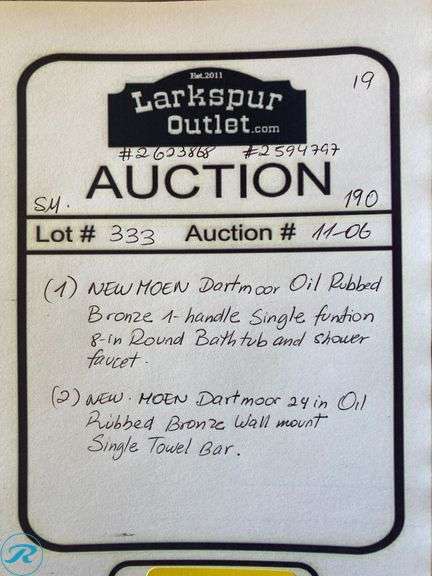 19
Est. 2011
Larkspur
Outlet.com
#2623868 #2594797
AUCTION
SM. 190
Lot # 333 Auction # 11-06
(1) NEW MOEN Dartmoor Oil Rubbed
Bronze 1-handle Single funtion
8-in Round Bathtub and shower
faucet.
(2) NEW. MOEN Dartmoor 24 in Oil
Rubbed Bronze Wall mount
Single Towel Bar.
R